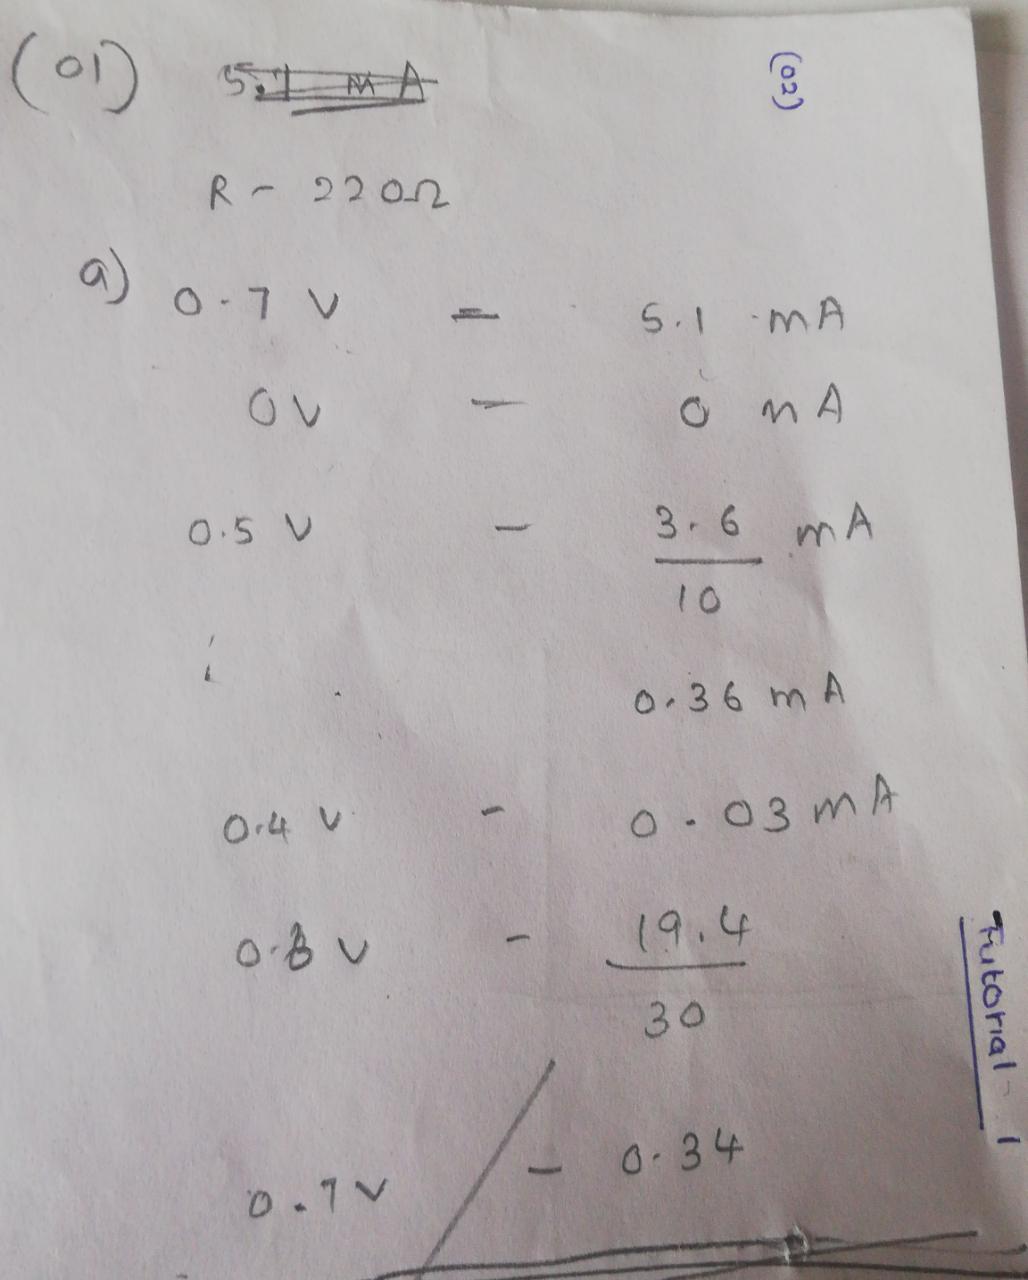 (01) 5.1 mA
(02)
R - 220Ω
a) 0.7 V = 5.1 mA
0V - 0 mA
0.5 V - 3.6 mA
10
0.36 mA
0.4 V - 0.03 mA
0.8 V - 19.4
30
0.7 V - 0.34
Tutorial - 1